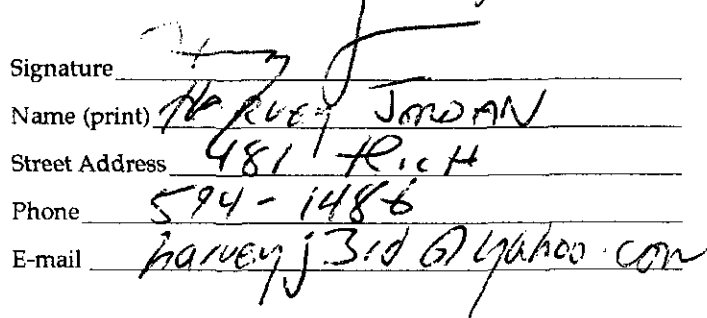 Signature
Name (print) HARVEY JORDAN
Street Address 481 RICH
Phone 594-1486
E-mail harveyj3rd@yahoo.com